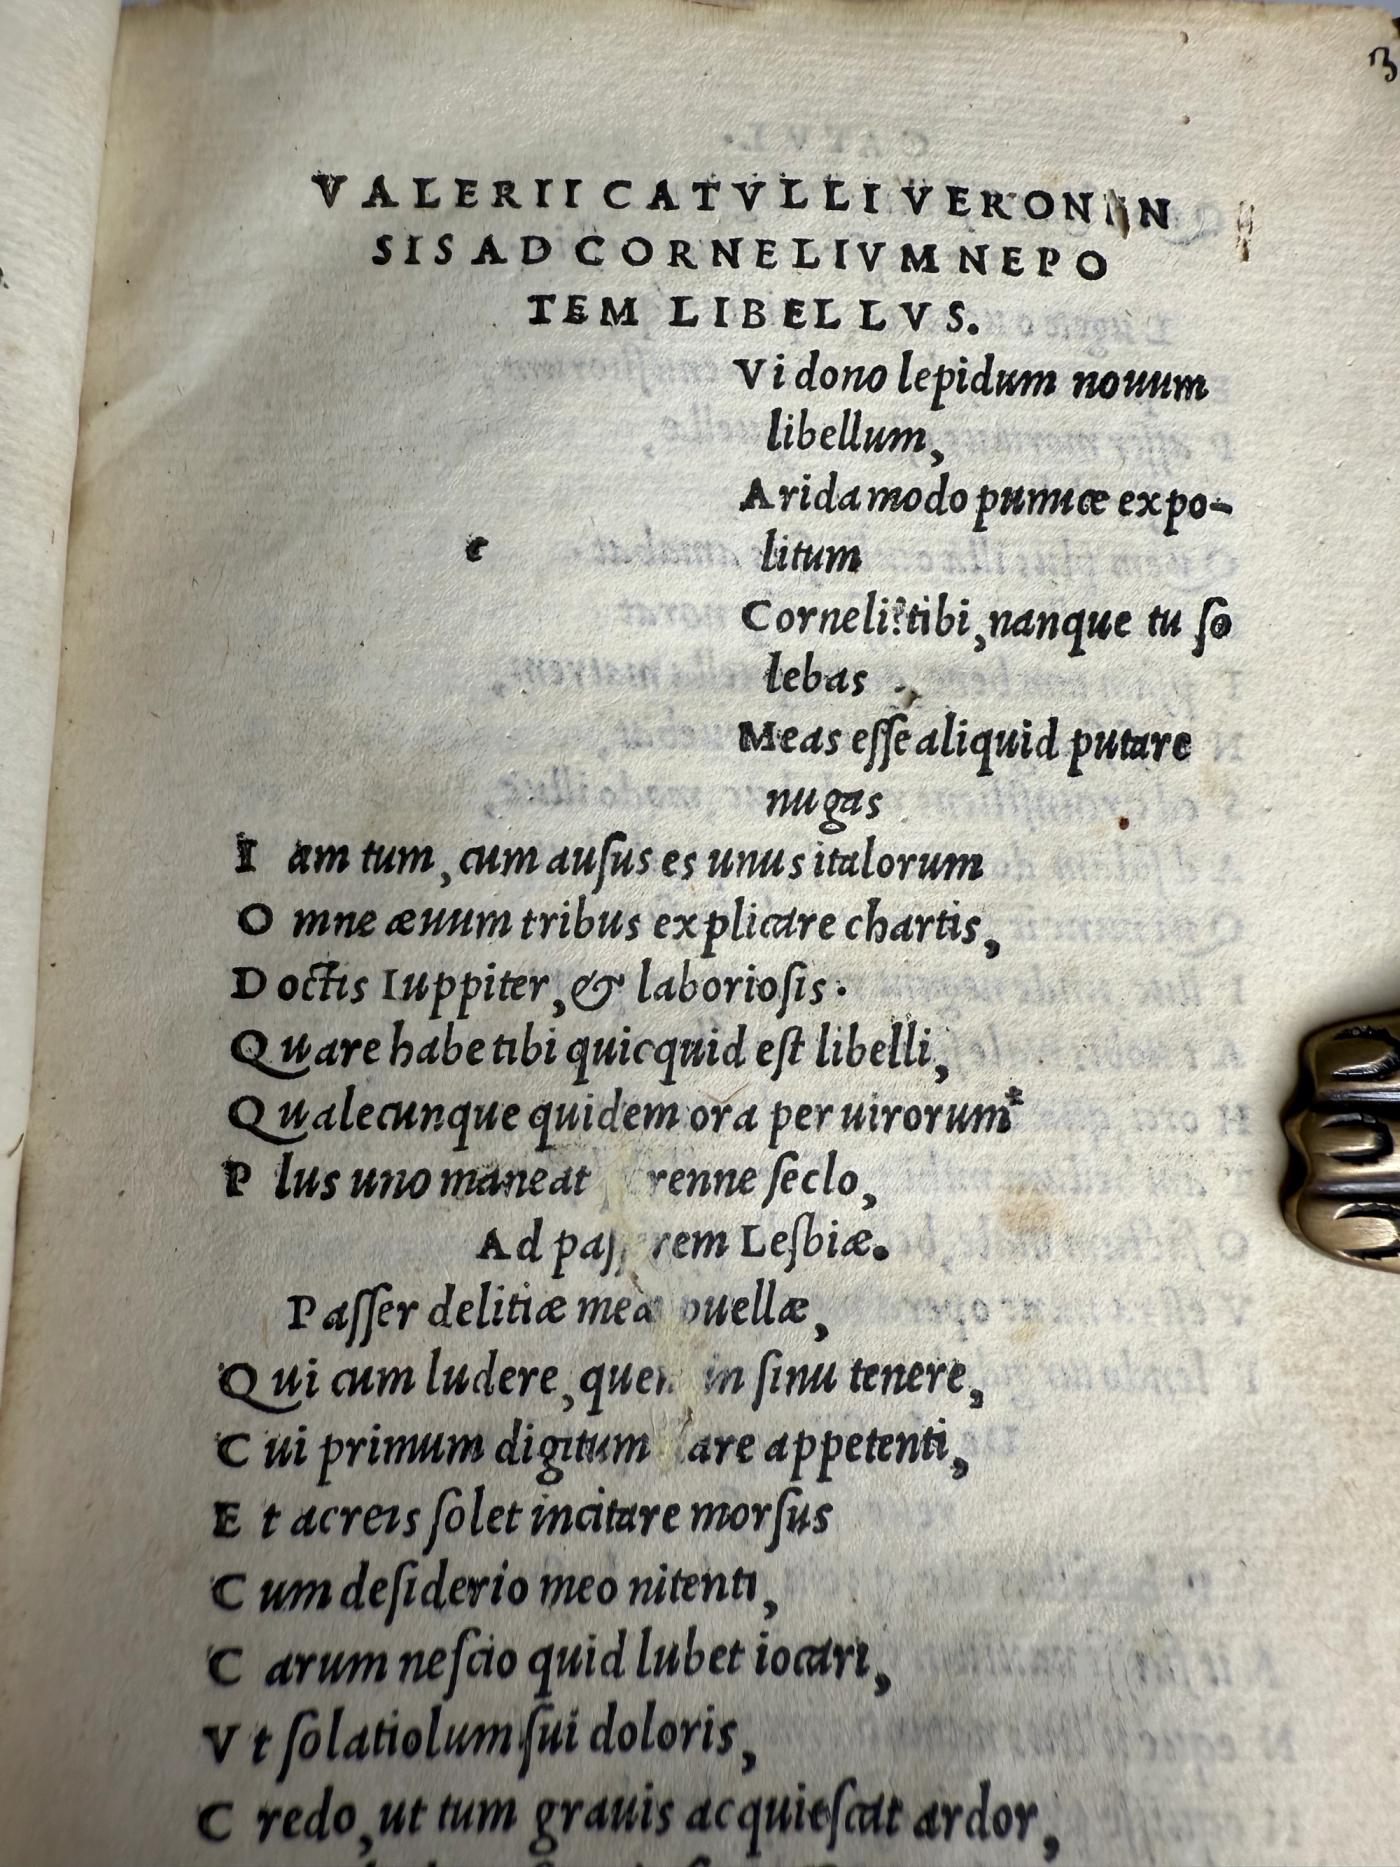 3
VALERII CATVLLI VERONEN
SIS AD CORNELIVM NEPO
TEM LIBELLVS.
Vi dono lepidum nouum
libellum,
Arida modo pumice expo-
litum
c
Corneli? tibi, nanque tu so
lebas
Meas esse aliquid putare
nugas
Iam tum, cum ausus es unus italorum
Omne æuum tribus explicare chartis,
Doctis Iuppiter, & laboriosis.
Quare habe tibi quicquid est libelli,
Qualecunque quidem ora per uirorum
Plus uno maneat renne seclo,
Ad passerem Lesbiæ.
Passer delitiæ meæ puellæ,
Qui cum ludere, quem in sinu tenere,
Cui primum digitum dare appetenti,
Et acreis solet incitare morsus
Cum desiderio meo nitenti,
Carum nescio quid lubet iocari,
Vt solatiolum sui doloris,
Credo, ut tum grauis acquiescat ardor,